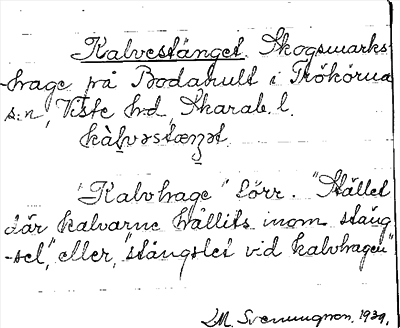 Kalvestänget. Skogsmarks-
-hage på Bodahult i Trökörna
s:n, Viste h:d, Skarab. l.
kàlvəstæŋət.
"Kalvhage" förr. "Stället
där kalvarne hållits inom stäng-
-sel," eller, "stängslet vid kalvhagen"
M. Svenungson. 1939.